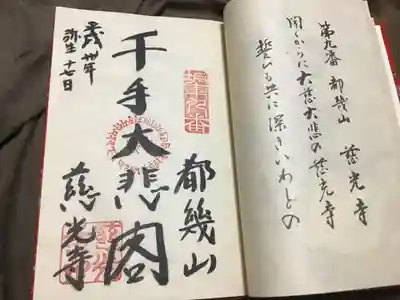 第九番 都幾山 慈光寺
聞くからに大慈大悲の慈光寺
誓も共に深きいわとの
都幾山
千手大悲閣
慈光寺
平成卅年
弥生十七日